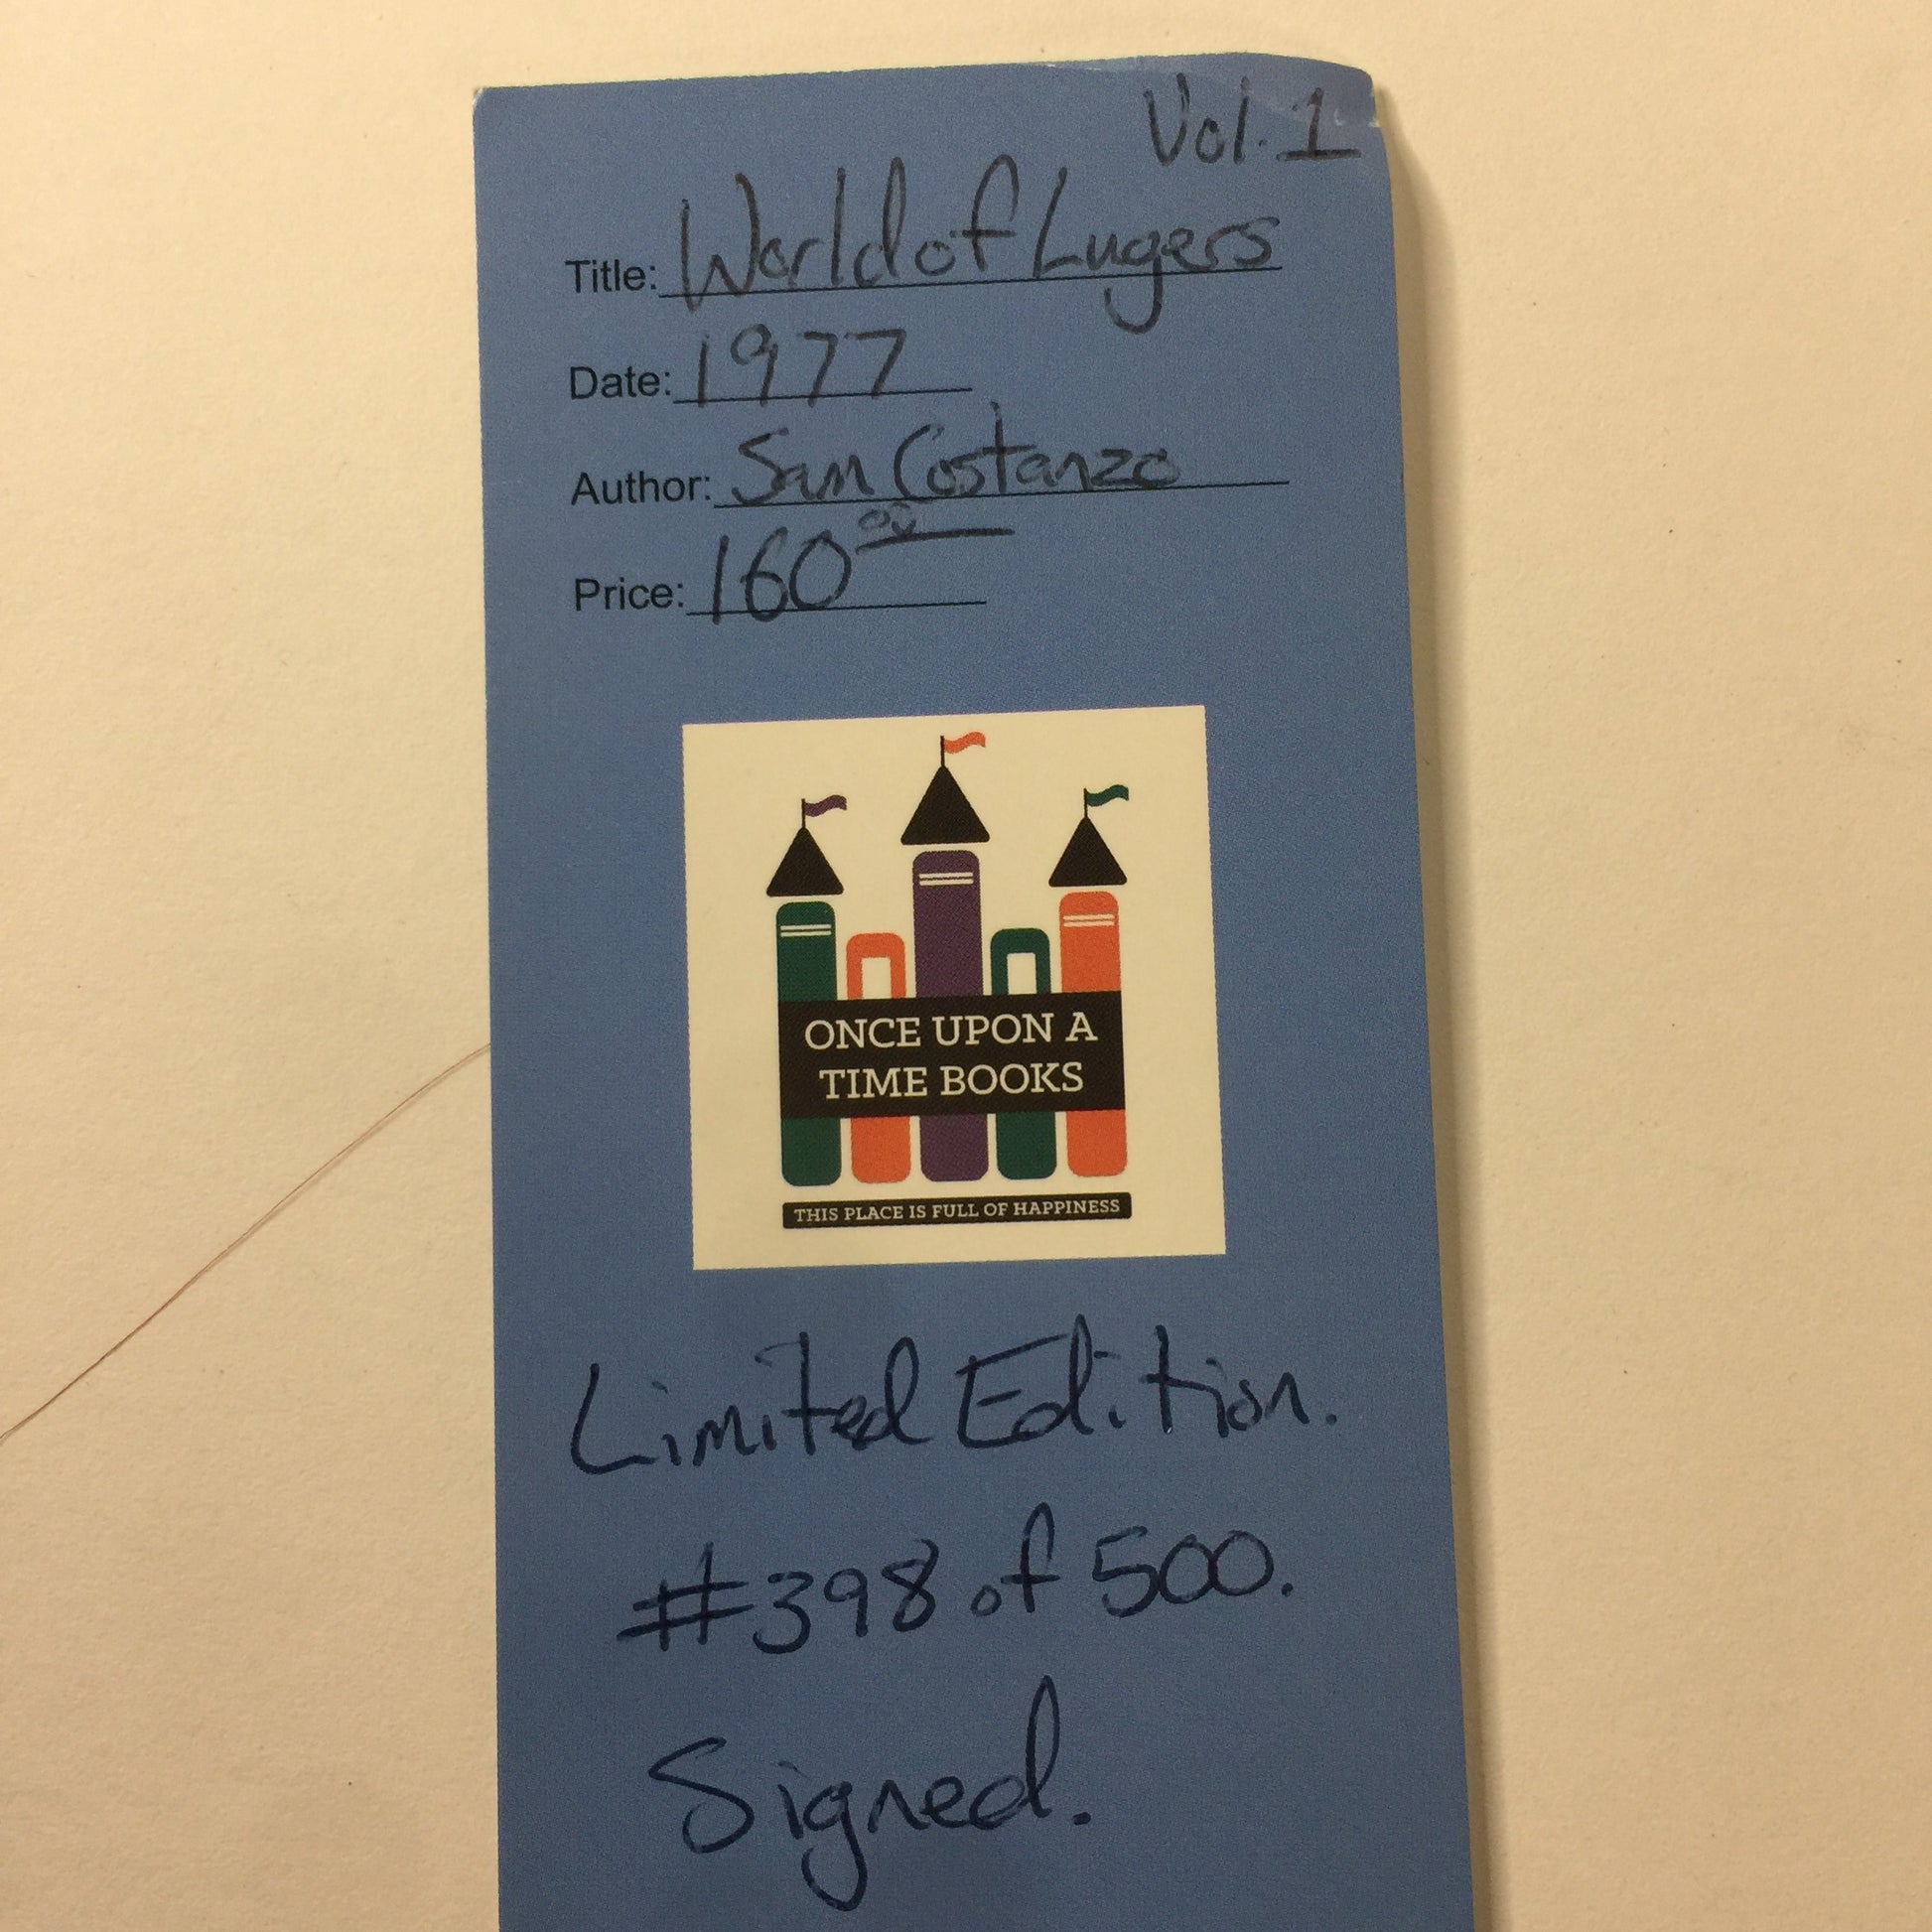 Vol. 1
Title: World of Lugers
Date: 1977
Author: Sam Costanzo
Price: 160 00
ONCE UPON A
TIME BOOKS
THIS PLACE IS FULL OF HAPPINESS
Limited Edition.
#398 of 500.
Signed.